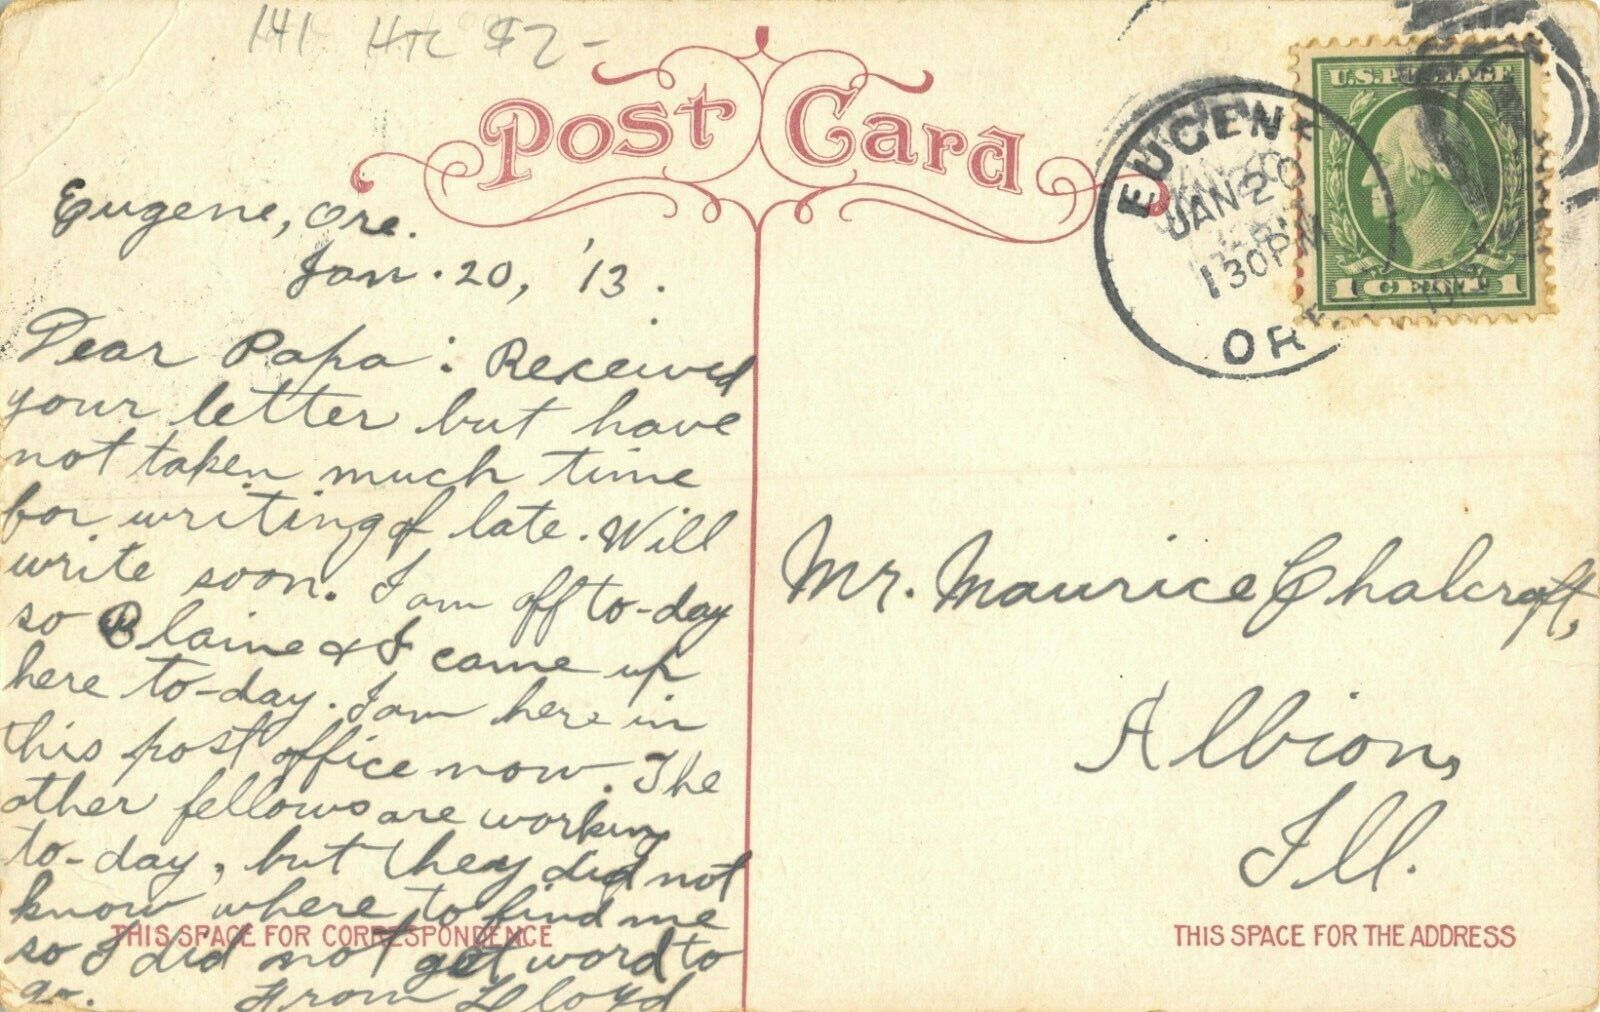 141 HTL $2-
Post Card
EUGENE
JAN 20
130PM
ORE
U.S. POSTAGE
1 CENT 1
Eugene, Ore.
Jan. 20, '13.
Dear Papa: Received
your letter but have
not taken much time
for writing of late. Will
write soon. I am off to-day
so Blaine & I came up
here to-day. I am here in
this post office now. The
other fellows are working
to-day, but they did not
know where to find me
so I did not get word to
go. From Lloyd
THIS SPACE FOR CORRESPONDENCE
Mr. Maurice Chalcraft,
Albion,
Ill.
THIS SPACE FOR THE ADDRESS